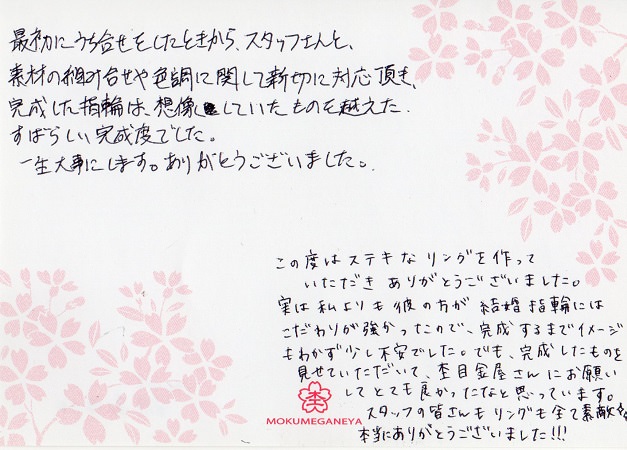 最初にうち合せをしたときから、スタッフさんと、
素材の組み合せや色調に関して新切に対応頂き、
完成した指輪は、想像していたものを越えた
すばらしい完成度でした。
一生大事にします。ありがとうございました。
この度はステキなリングを作って
いただき ありがとうございました。
実は私よりも彼の方が 結婚指輪には
こだわりが強かったので、完成するまでイメージ
もわかず少し不安でした。でも、完成したものを
見せていただいて、杢目金屋さんにお願い
してとても良かったなと思っています。
スタッフの皆さんもリングも全て素敵☆
本当にありがとうございました!!!
杢
MOKUMEGANEYA